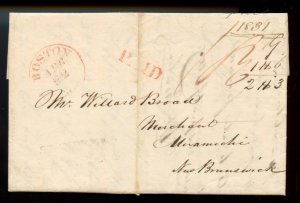 BOSTON
APR
PAID
1831
9
1 11 6
2 11 3
Mr. Willard Broad
Merchant
Miramichi
New Brunswick